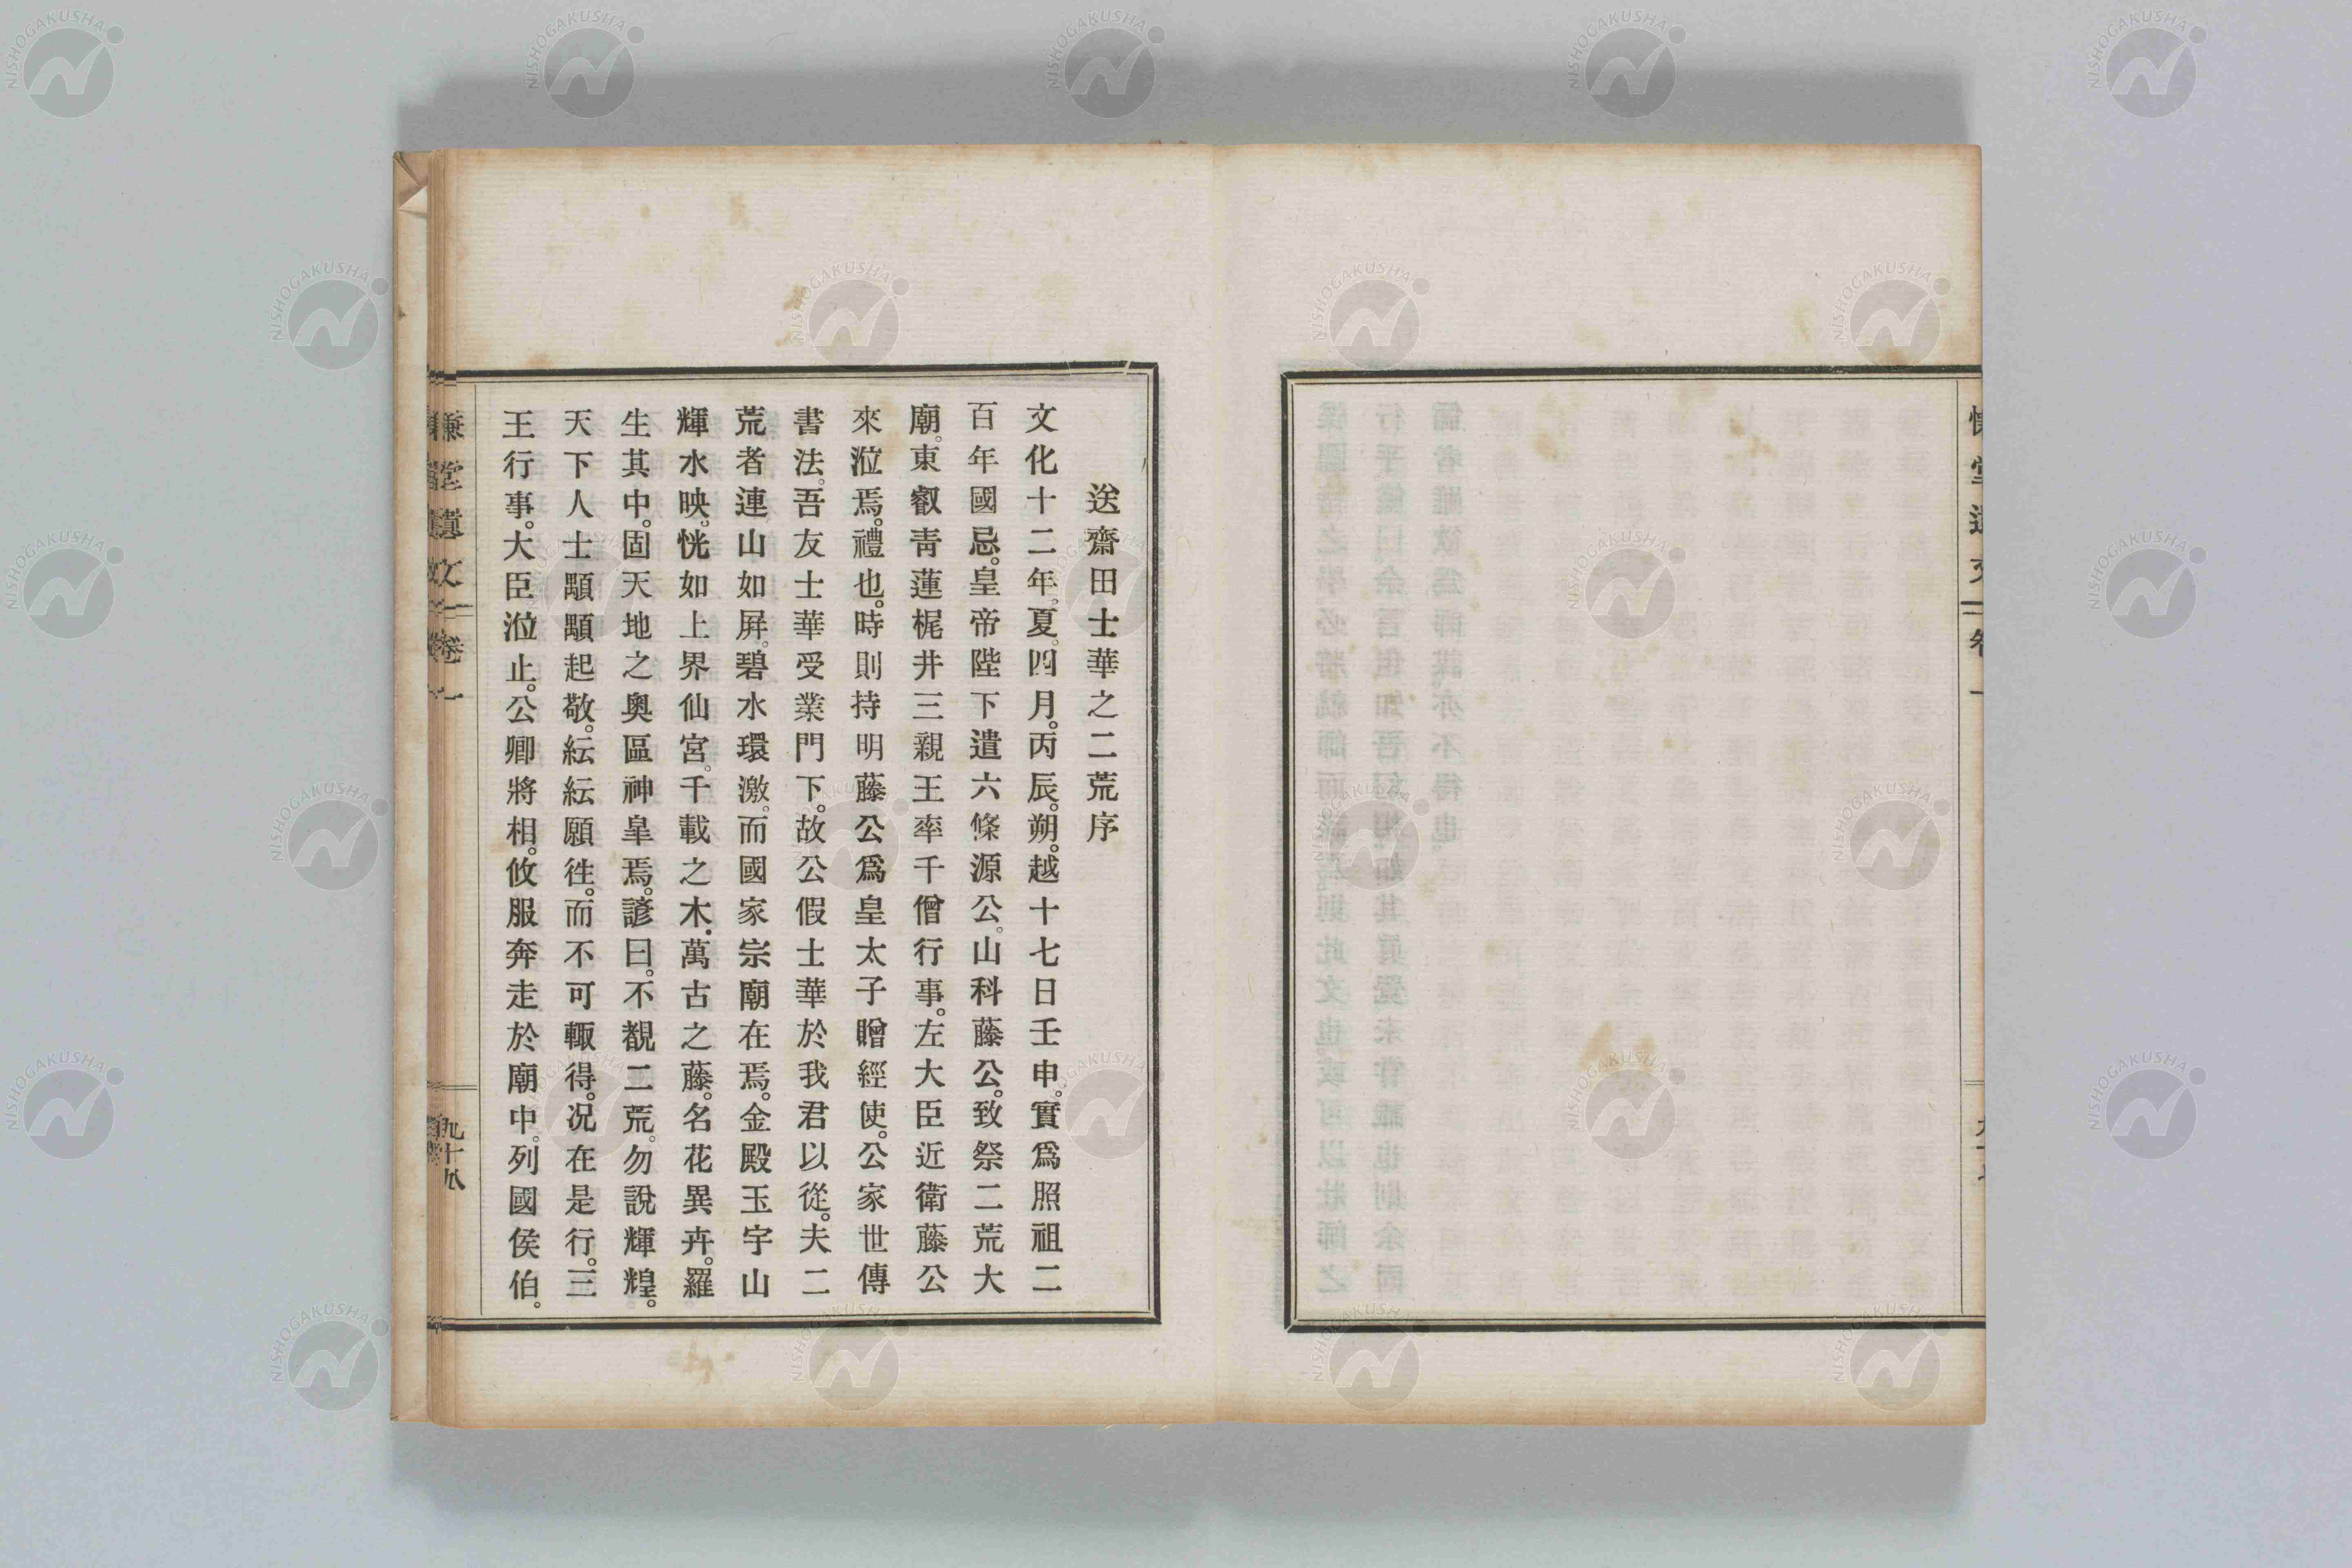 送齋田士華之二荒序
文化十二年。夏。四月。丙辰。朔。越十七日壬申。實爲照祖二
百年國忌。皇帝陛下遣六條源公。山科藤公。致祭二荒大
廟。東叡靑蓮梶井三親王率千僧行事。左大臣近衛藤公
來涖焉。禮也。時則持明藤公爲皇太子贈經使。公家世傳
書法。吾友士華受業門下。故公假士華於我君以從。夫二
荒者連山如屏。碧水環激。而國家宗廟在焉。金殿玉宇山
輝水映。恍如上界仙宮。千載之木。萬古之藤。名花異卉。羅
生其中。固天地之奧區神皐焉。諺曰。不覩二荒。勿說輝煌。
天下人士顒顒起敬。紜紜願徃。而不可輙得。况在是行。三
王行事。大臣涖止。公卿將相。攸服奔走於廟中。列國侯伯。
慊堂遺文 卷一
九十八
NISHOGAKUSHA